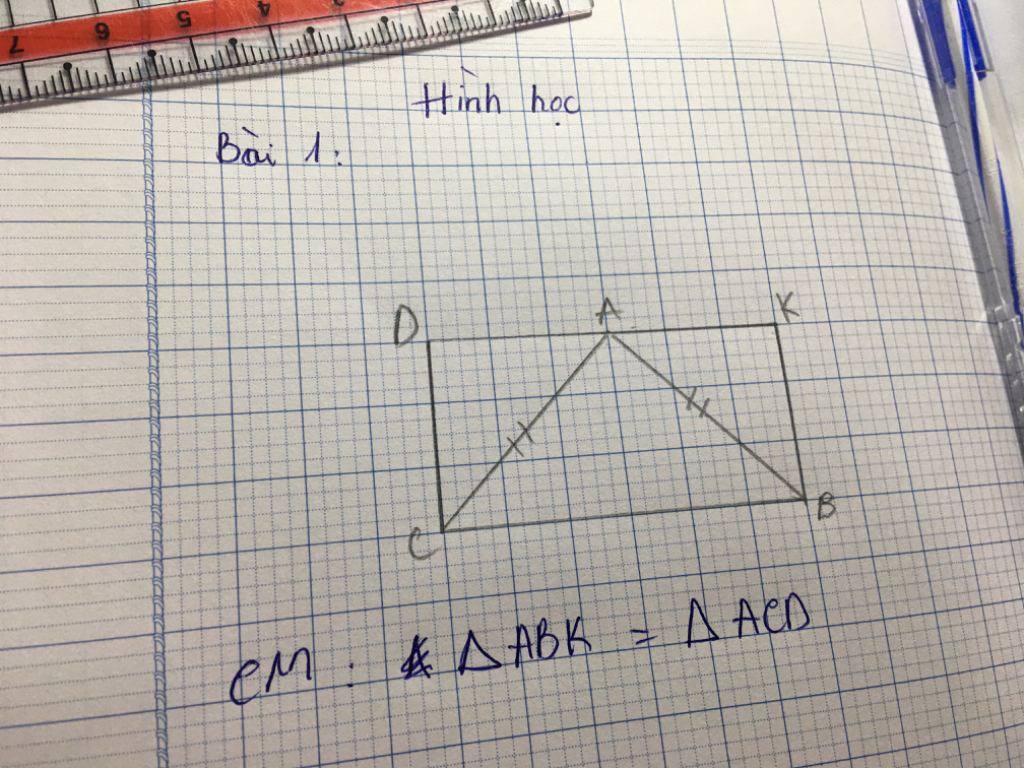 7 6 5 4 3
Hình học
Bài 1:
D A K
C B
CM: Δ ABK = Δ ACD